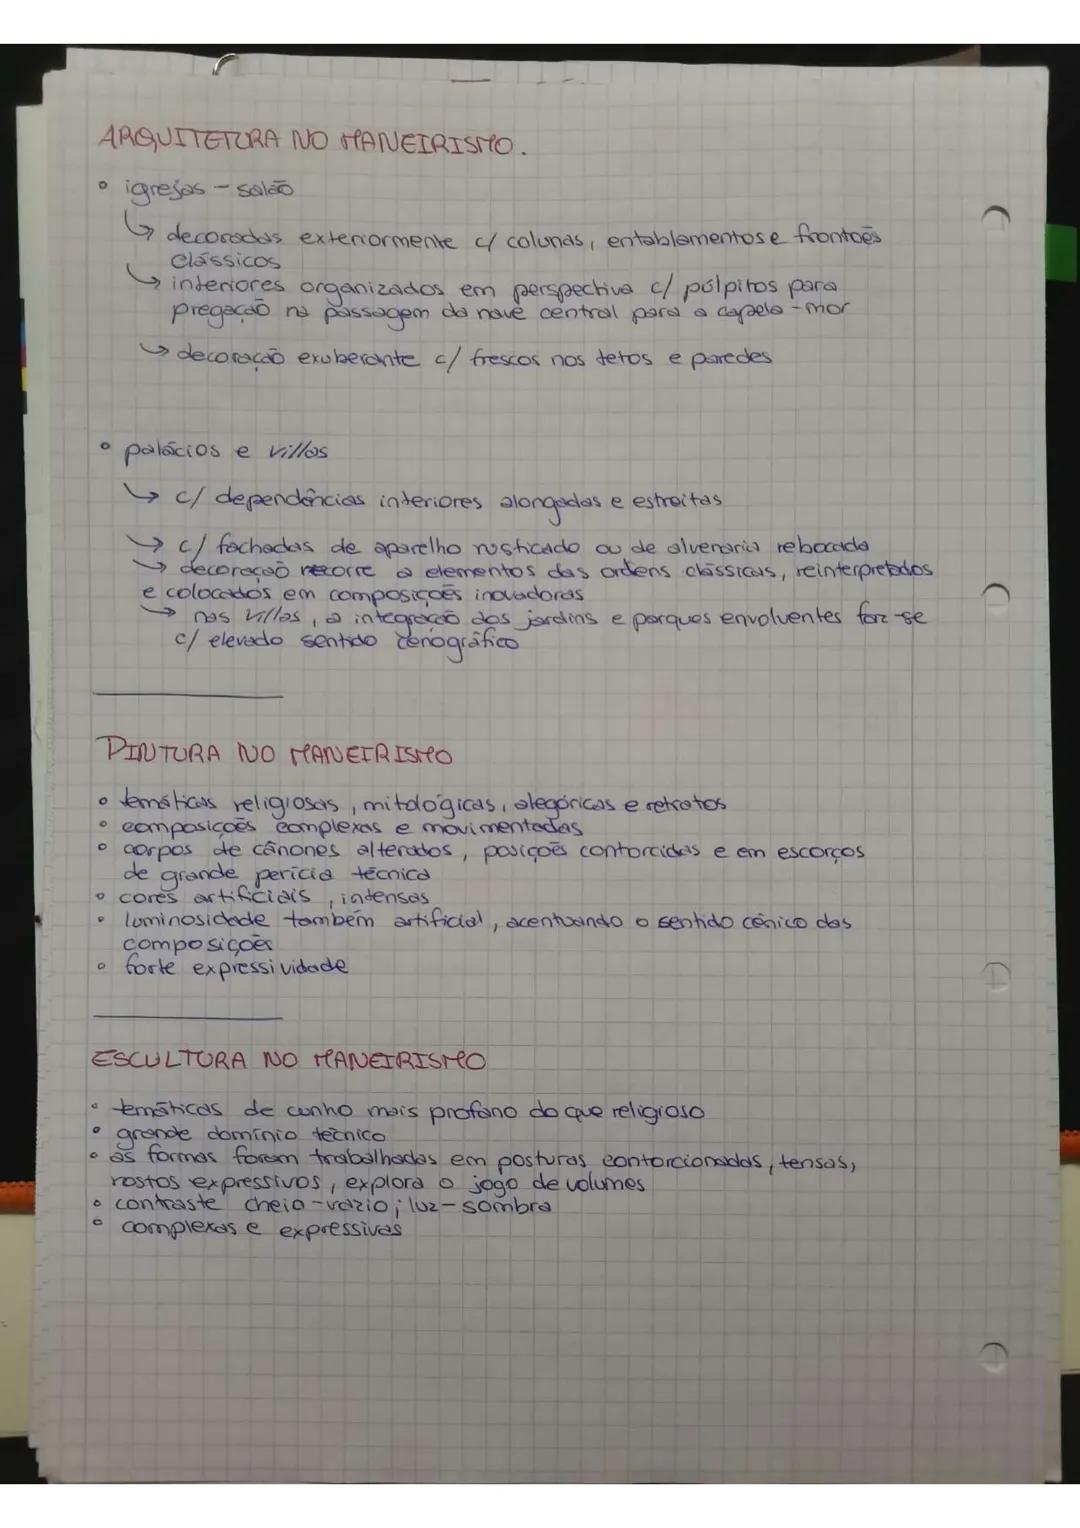 ARQUITETURA NO MANEIRISMO.
• igrejas - salão
↳ decoradas exteriormente c/ colunas, entablamentos e frontões
clássicos
↳ interiores organizados em perspectiva c/ púlpitos para
pregação na passagem da nave central para a capela-mor
↳ decoração exuberante c/ frescos nos tetos e paredes
• palácios e villas
↳ c/ dependências interiores alongadas e estreitas
↳ c/ fachadas de aparelho rusticado ou de alvenaria rebocada
↳ decoração recorre a elementos das ordens clássicas, reinterpretados
e colocados em composições inovadoras
↳ nas villas, a integração dos jardins e parques envolventes faz-se
c/ elevado sentido cenográfico
PINTURA NO MANEIRISMO
• temáticas religiosas, mitológicas, alegóricas e retratos
• composições complexas e movimentadas
• corpos de cânones alterados, posições contorcidas e em escorços
de grande perícia técnica
• cores artificiais, intensas
• luminosidade também artificial, acentuando o sentido cénico das
composições
• forte expressividade
ESCULTURA NO MANEIRISMO
• temáticas de cunho mais profano do que religioso
• grande domínio técnico
• as formas foram trabalhadas em posturas contorcionadas, tensas,
rostos expressivos, explora o jogo de volumes
• contraste cheio-vazio; luz-sombra
• complexas e expressivas